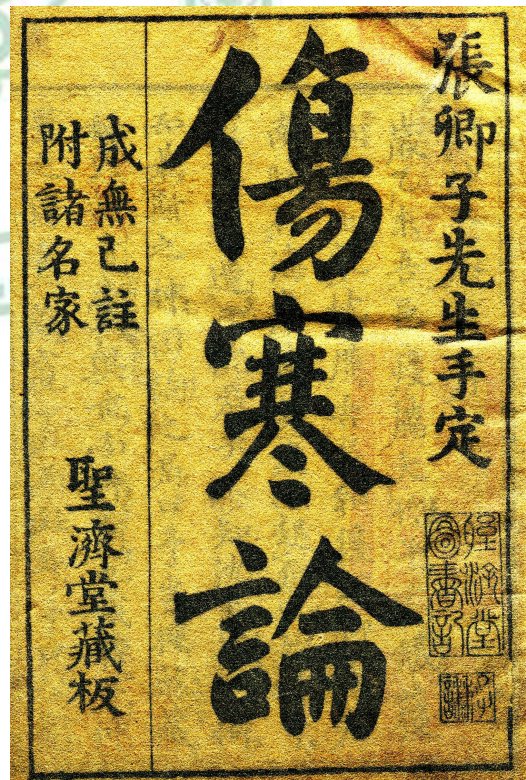 張卿子先生手定
傷寒論
成無己註
附諸名家
聖濟堂藏板